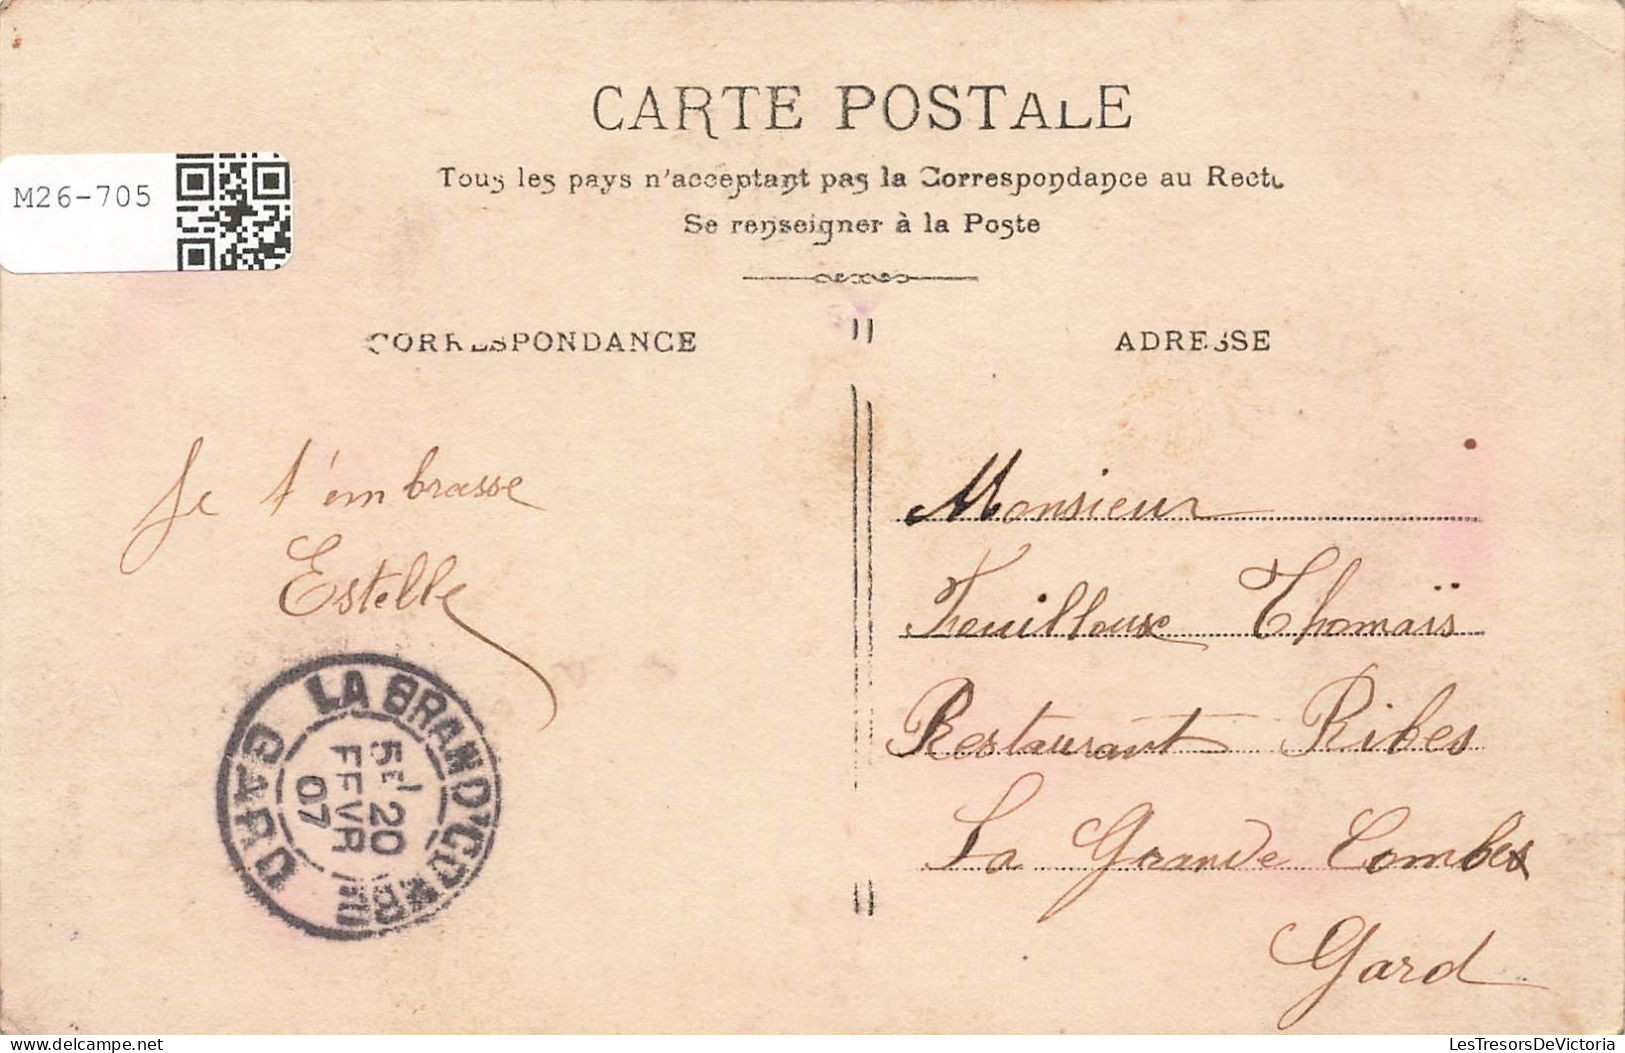 CARTE POSTALE
Tous les pays n'acceptant pas la Correspondance au Recto
Se renseigner à la Poste
M26-705
CORRESPONDANCE
ADRESSE
Je t'embrasse
Estelle
LA GRAND'COMBE
5E/ 20
FEVR
07
GARD
Monsieur
Feuilloux Thomaïs
Restaurant Ribes
La Grande Combes
Gard
LesTresorsDeVictoria